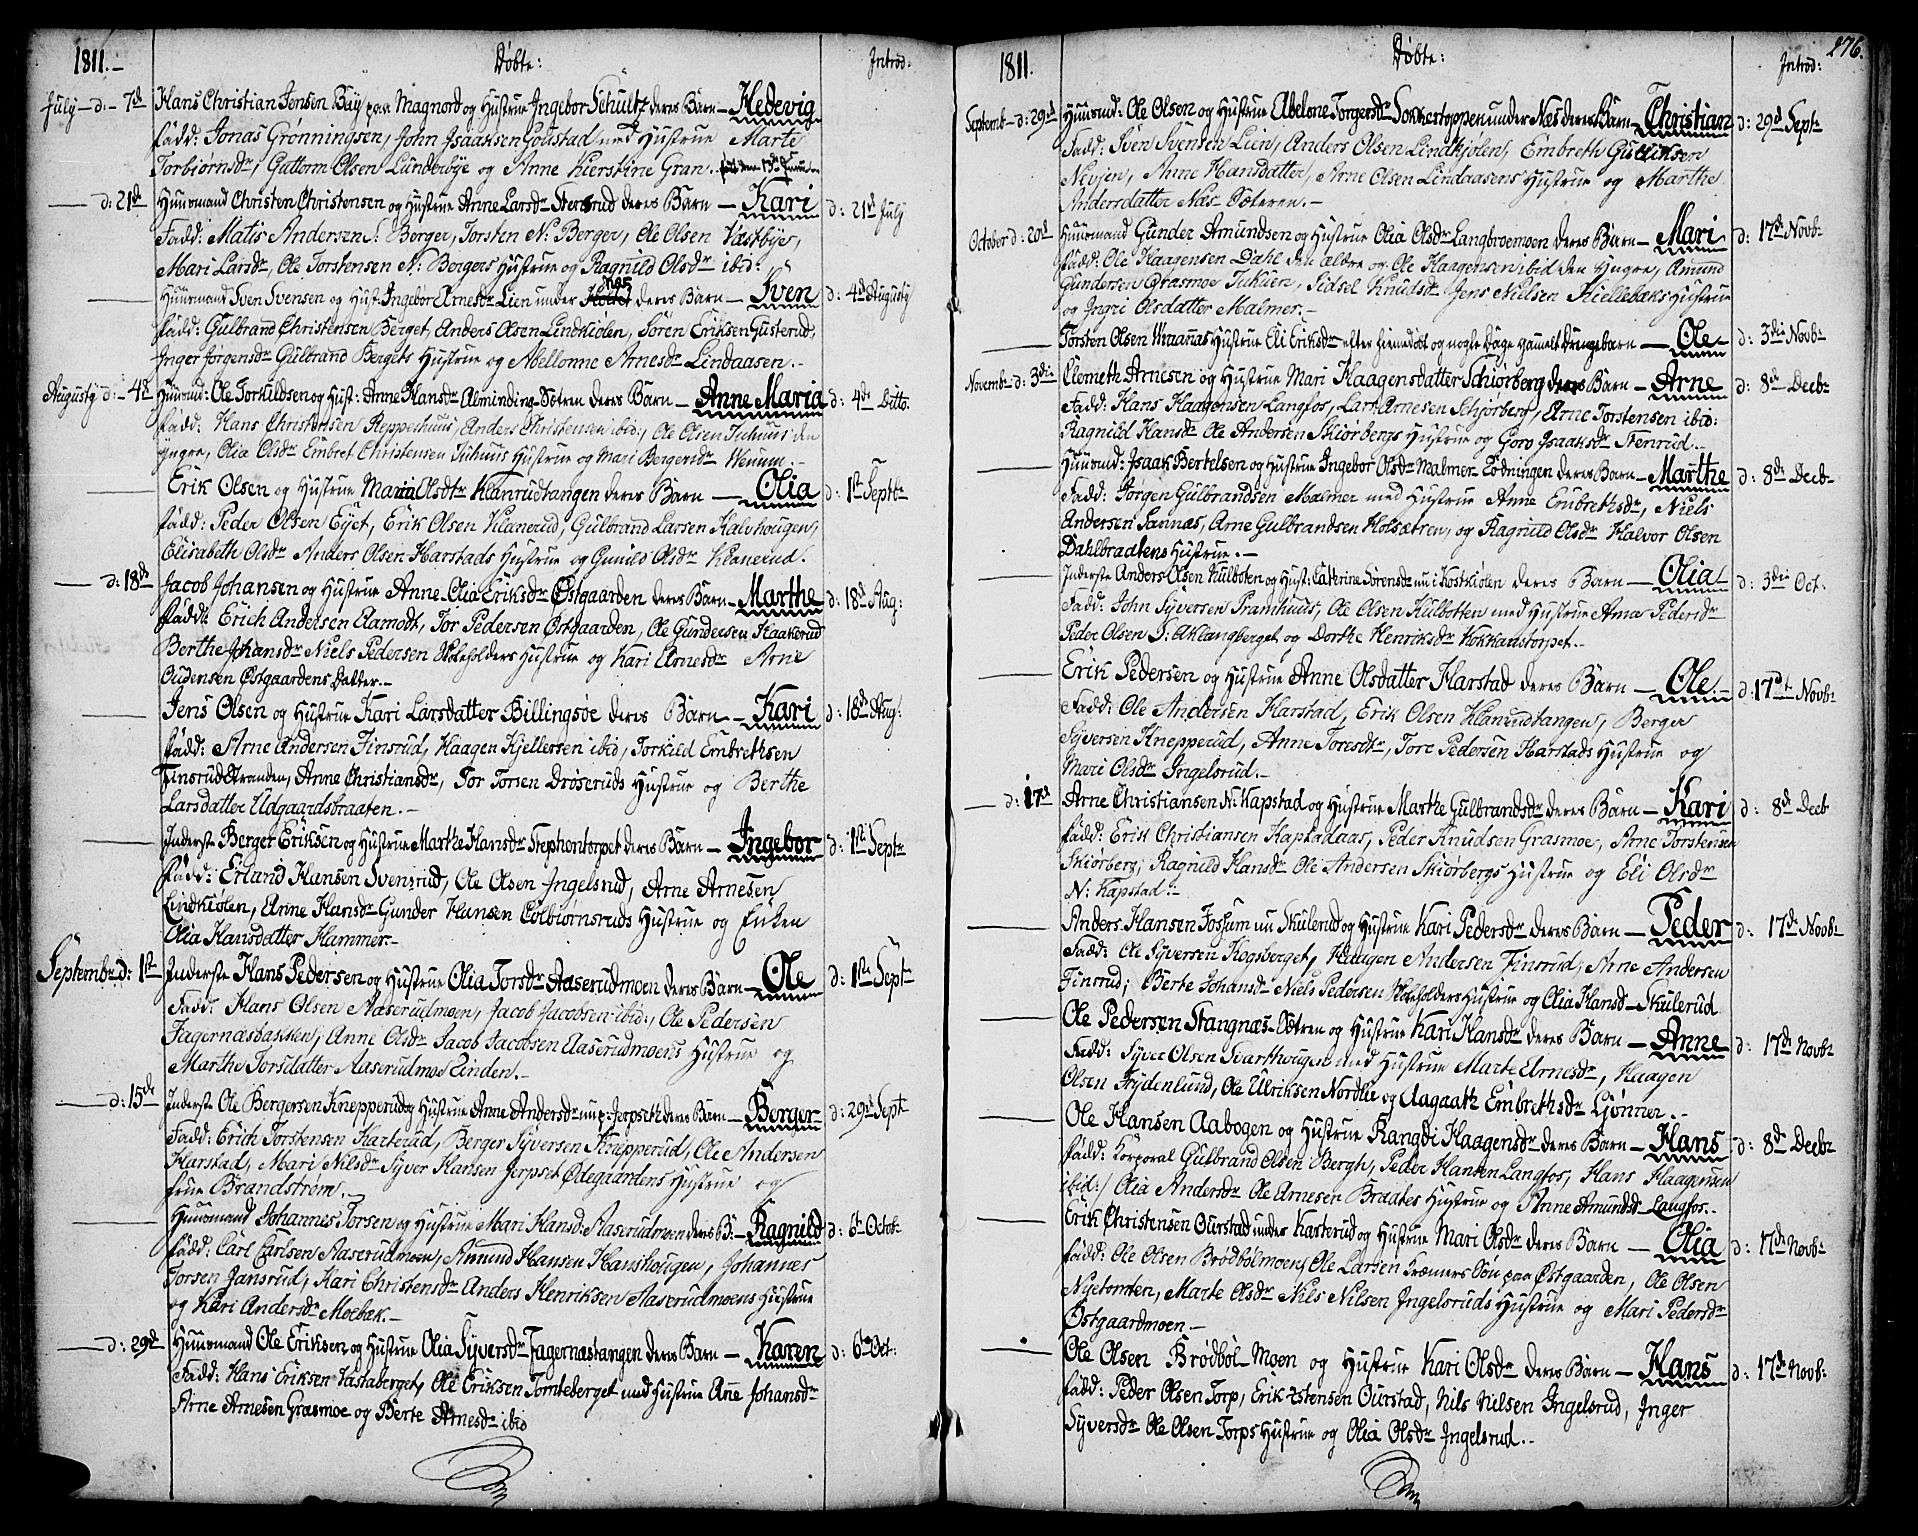 1811.–
Døbte:
Introd:
July – d: – 7de Hans Christian Jensen Baÿ paa Magnord og Hustrue Ingebor Schultz deres Barn – Hedevig
fadd: Jonas Grønningsen, John Isaaksen Golstad med Hustrue Marte
Torbiørnsdr, Guttorm Olsen Lundebye og Anne Kierstine Gran.
— d: 21de Huusmand Christen Christensen og Hustrue Anne Larsdr Stensrud deres Barn – Kari d: 21de July
Fadd: Matis Andersen S: Berger, Torsten N: Berger, Ole Olsen Vestbye,
Mari Larsdr, Ole Torstensen N: Bergers Hustrue og Ragnild Olsdr ibid:
— Huusmand Sven Svensen og Hust: Ingebor Arnesdr Lien under Næs deres Barn – Sven d: 4de Augusty
fadd: Gulbrand Christensen Berget, Anders Olsen Lindkiølen, Søren Eriksen Gusterud,
Inger Jørgensdr Gulbrand Bergets Hustrue og Abellonne Arnesdr Lindaasen.–
Augusty d: – 4de Huusmd: Ole Torkildsen og Hust: Anne Hansdr Alminding-Sætren deres Barn – Anne Maria d: 4de Ditto.
fadd: Hans Christensen Repperhuus, Anders Christensen ibid:, Ole Olsen Juhuus den
yngre, Olia Olsdr Embret Christensen Juhuus Hustrue og Mari Bergersdr Wenum.–
— Erik Olsen og Hustrue Maria Olsdtr Klanrudtangen deres Barn — Olia d: 1st Septbr
fadd: Peder Olsen Eÿet, Erik Olsen Klanerud, Gulbrand Larsen Halvhougen,
Elisabeth Olsdr Anders Olsen Harstads Hustrue og Gunild Olsdr Klanerud.
— d: 18de Jacob Johansen og Hustrue Anne Olia Eriksdr Østgaarden deres Barn – Marthe d: 18de Aug:
fadd: Erich Andersen Aamodt, Tor Pedersen Østgaarden, Ole Gundersen Haakerud
Berthe Johansdr Niels Pedersen Skoleholders Hustrue og Kari Arnesdr Arne
Oudensen Østgaardens Datter.–
— Jens Olsen og Hustrue Kari Larsdatter Billingsøe deres Barn – Kari d: 18de Aug:
fadd: Arne Andersen Finsrud, Haagen Kjellersen ibid, Torkild Embrethsen
Finsrudstranden, Anne Christiansdr, Tor Torsen Drøseruds Hustrue og Berthe
Larsdatter Udgaardsbraaten.–
— Inderste Berger Eriksen og Hustrue Marthe Hansdr Stephentorpet deres Barn – Ingebor d: 1st Septr
fadd: Erland Hansen Svensrud, Ole Olsen Ingelsrud, Arne Arnesen
Lindkiølen, Anne Hansdr Gunder Hansen Colbiørnsruds Hustrue og Enken
Olia Hansdatter Hammer.–
Septembr d: 1st Inderste Hans Pedersen og Hustrue Olia Torsdr Aaserudmoen deres Barn – Ole d: 1st Septr
Fadd: Hans Olsen Aaserudmoen, Jacob Jacobsen ibid:, Ole Pedersen
Fagernæsbakken, Anne Olsdr Jacob Jacobsen Aaserudmoens Hustrue og
Marthe Torsdatter Aaserudmoe Linden.–
— d: 15de Inderste Ole Bergersen Knepperud og Hustrue Anne Andersdr nu p: Jerpseth deres Barn – Berger d: 29de Sept
Fadd: Erich Torstensen Harterud, Berger Syversen Knepperud, Ole Andersen
Harstad, Mari Nilsdr Syver Hansen Jerpset Ødegaardens Hustrue og
frue Brandstrøm.–
— Huusmand Johannes Torsen og Hustrue Mari Hansdr Aaserudmoen deres B: – Ragnild d: 6te Octobr
fadd: Carl Carlsen Aaserudmoen, Amund Hansen Hanshougen, Johannes
Torsen Jansrud, Kari Christensdr Anders Henriksen Aaserudmoens Hustrue
og Kari Andersdr Moebæk.–
— d: 29de Huusmand Ole Eriksen og Hustrue Olia Syversdr Fagernæstangen deres Barn – Karen d: 6te Oct:
Fadd: Hans Eriksen Vastaberget, Ole Eriksen Tomteberget med Hustrue Anne Johansdr
Arne Arnesen Grasmoe og Berte Arnesdr ibid
1811.
Døbte:
Introd:
276.
Septemb – d: 29de Huusmd: Ole Olsen og Hustrue Abelone Torgersdr Sokkertoppen under Næs deres Barn – Christian d: 29de Septr
Fadd: Sven Svensen Lien, Anders Olsen Lindkjølen, Embreth Gulliksen
Nevjen, Anne Hansdatter, Arne Olsen Lindaasens Hustrue og Marthe
Andersdatter Næs Sæteren.–
October d: 20de Huusmand Gunder Amundsen og Hustrue Olia Olsdr Langbroemoen deres Barn – Mari d: 17de Novbr
fadd: Ole Haagensen Dahl den ældre og Ole Haagensen ibid den Yngre, Amund
Gundersen Grasmoe Jukuen, Sidsel Knudsdr Jens Nielsen Kiellebæks Hustrue
og Ingri Olsdatter Malmer.–
— Torsten Olsen Maanæs Hustrue Eli Eriksdr efter hiemedøbt og nogle Dage gamelt Drengebarn — Ole d: 3die Novbr
Novembr d: 3die Clemeth Arnesen og Hustrue Mari Haagensdatter Schiørberg deres Barn – Arne d: 8de Decbr
Fadd: Hans Haagensen Langfos, Lars Arnesen Schjørberg, Arne Torstensen ibid:
Ragnild Hansdr Ole Andersen Skiørbergs Hustrue og Goro Isaaksdr Stenrud.–
— Huusmd: Isaak Bertelsen og Hustrue Ingebor Olsdr Malmer-Rødningen deres Barn – Marthe d: 8de Decbr
Fadd: Jørgen Gulbrandsen Malmer med Hustrue Anne Embrethsdr, Niels
Andersen Sannæs, Arne Gulbrandsen Holsætren, og Ragnild Olsdr Halvor Olsen
Dahlbraatens Hustrue.–
— Inderste Anders Olsen Kulboten og Hust: Cattrine Sørensdr nu i Kostkiølen deres Barn – Olia d: 3die Oct:
Fadd: John Syversen Pramhuus, Ole Olsen Kulbotten med Hustrue Anna Pedersdr
Peder Olsen S: Aklangberget og Dorthe Henriksdr Kokkanstorpet.–
— Erik Pedersen og Hustrue Anne Olsdatter Harstad deres Barn – Ole.– d: 17de Novbr
Fadd: Ole Andersen Harstad, Erik Olsen Klanrudtangen, Berger
Syversen Knepperud, Anne Toresdr, Tore Pedersen Harstads Hustrue og
Mari Olsdr Ingelsrud.–
— d: 17de Arne Christiansen N: Kapstad og Hustrue Marthe Gulbrandsdr deres Barn – Kari d: 8de Decb
fadd: Erik Christiansen Kapstadaas, Peder Knudsen Grasmoe, Arne Torstensen
Skiørberg, Ragnild Hansdr Ole Andersen Skiørbergs Hustrue og Eli Olsdr
N: Kapstad.–
— Anders Hansen Fossum nu Skulerud og Hustrue Kari Pedersdr deres Barn – Peder d: 17de Novbr
Fadd: Ole Syversen Kogsberget, Haagen Andersen Finsrud, Arne Andersen
Finsrud, Berte Johansdr Niels Pedersen Skoleholders Hustrue og Olia Hansdr Skulerud
— Ole Pedersen Stangnæs-Sætren og Hustrue Kari Hansdr deres Barn – Anne d: 17de Novbr
Fadd: Syver Olsen Svarthougen med Hustrue Marte Arnesdr, Haagen
Olsen Frydenlund, Ole Ulriksen Nordlie og Aagaath Embrethsdr Gønner.–
— Ole Hansen Aabogen og Hustrue Rangdi Haagensdr deres Barn – Hans d: 8de Decbr
fadd: Korporal Gulbrand Olsen Bergh, Peder Hansen Langfos, Hans Haagensen
ibid:/ Olia Andersdr Ole Arnesen Braates Hustrue og Anne Amundsdr Langfos.–
— Erik Christensen Ourstad under Karterud og Hustrue Mari Olsdr deres Barn – Olia d: 17de Novbr
fadd: Ole Olsen Brødbølmoen, Ole Larsen Kræmers Søn paa Østgaarden, Ole Olsen
Nyetomten, Marte Olsdr Nils Nilsen Ingelsruds Hustrue og Mari Pedersdr
Østgaardmoen.–
— Ole Olsen Brødbøl-Moen og Hustrue Kari Olsdr deres Barn – Hans d: 17de Novbr
fadd: Peder Olsen Torp, Erik Ourstad, Nils Nilsen Ingelsrud, Inger
Syversdr Ole Olsen Torps Hustrue og Olia Olsdr Ingelsrud.–